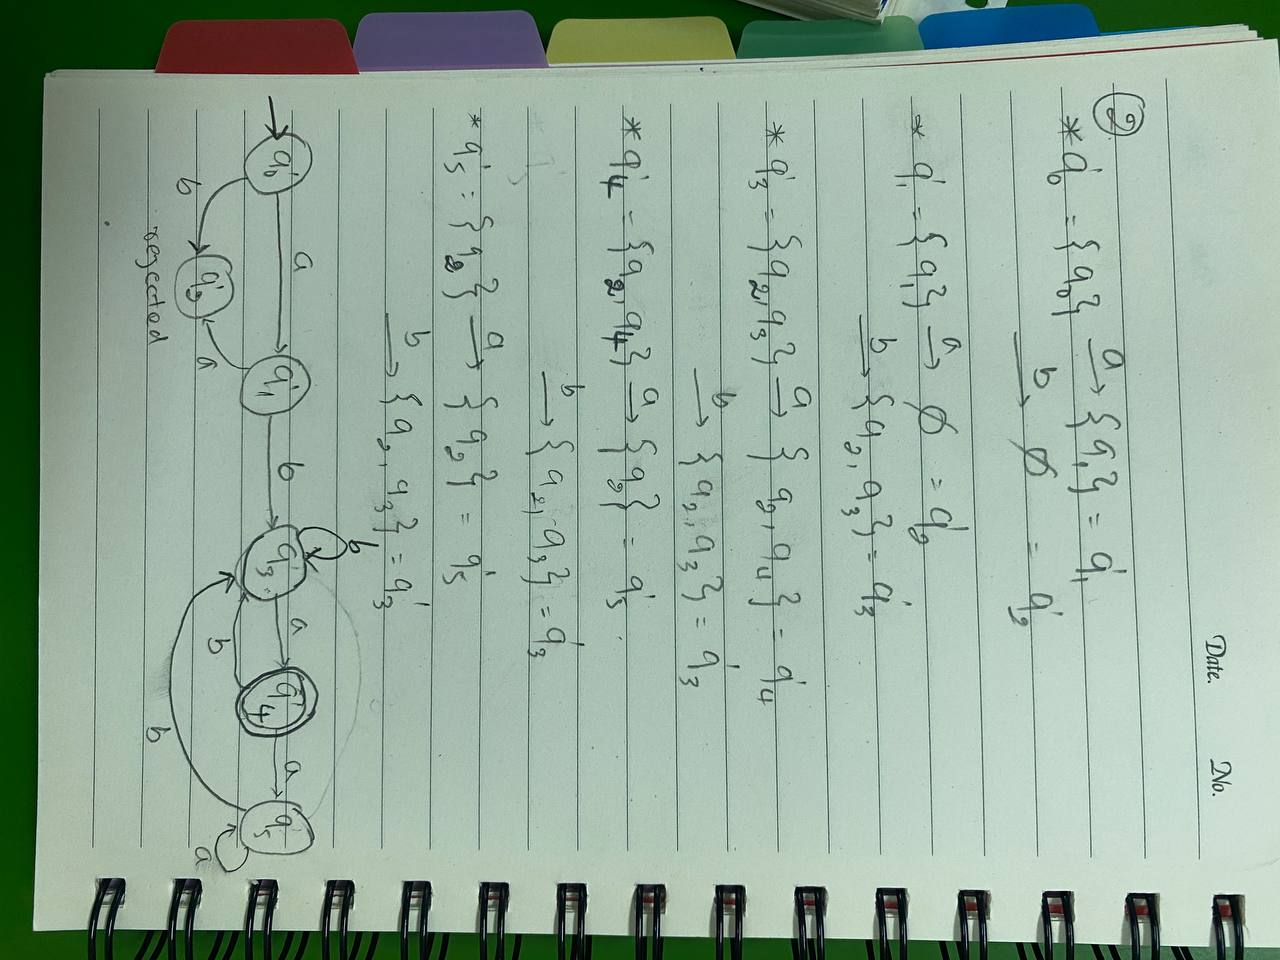 Date. No.
②
* q'0 = {q0} a→ {q1} = q'1
b→ ∅ = q'2
* q'1 = {q1} a→ ∅ = q'2
b→ {q2, q3} = q'3
* q'3 = {q2, q3} a→ {q2, q4} = q'4
b→ {q2, q3} = q'3
* q'4 = {q2, q4} a→ {q2} = q'5
b→ {q2, q3} = q'3
* q'5 = {q2} a→ {q2} = q'5
b→ {q2, q3} = q'3
q'0 a q'1 b q'3 a q'4 a q'5
b q'2 a b b b a
rejected